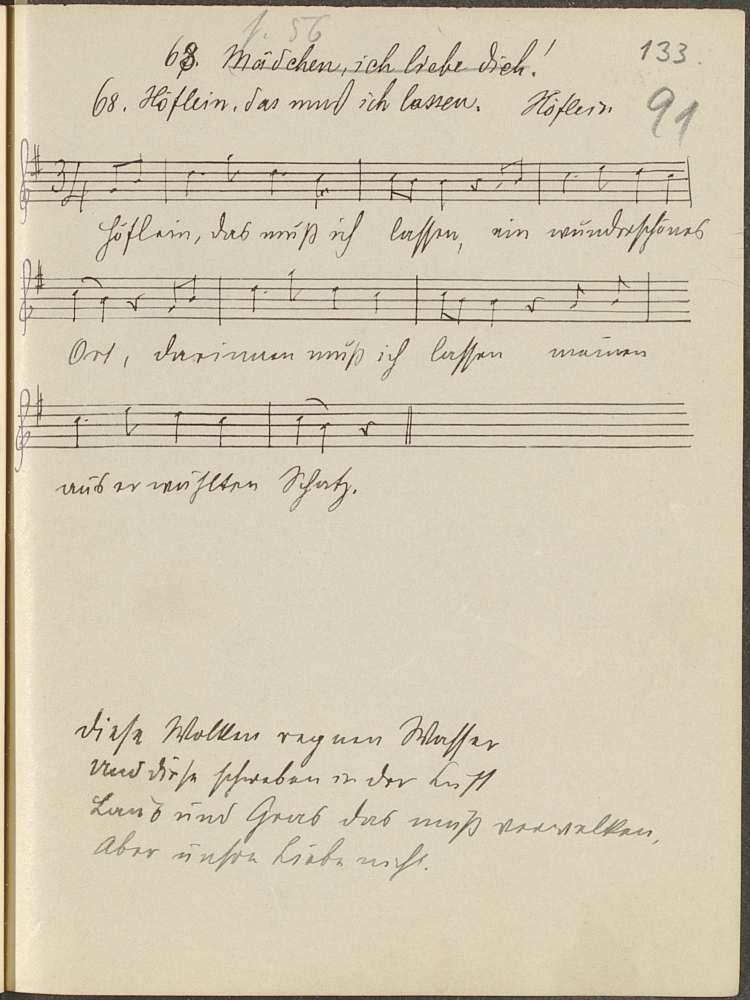 f. 56
68. Mädchen, ich liebe dich!
133.
68. Höflein, das muß ich lassen. Höflein
91
3/4
Höflein, das muß ich lassen, ein wunderschönes
Ort, darinnen muß ich lassen meinen
auserwählten Schatz.
Diese Wolken regnen Wasser
Und diese schweben in der Luft
Laub und Gras das muß verwelken,
Aber unsre Liebe nicht.